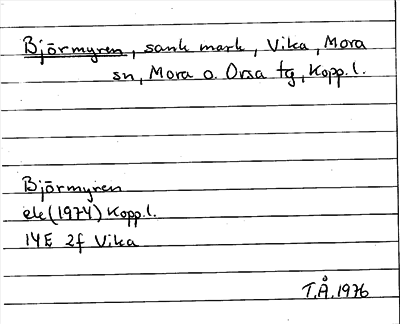 Björmyren, sank mark, Vika, Mora
sn, Mora o. Orsa tg, Kopp. l.
Björmyren
ek (1974) Kopp. l.
14E 2f Vika
T.Å. 1976